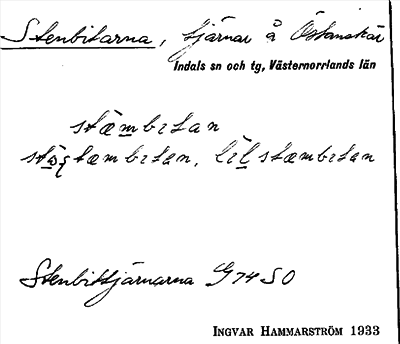 Stenbitarna, tjärnar å Östanskär
Indals sn och tg, Västernorrlands län
stæmbitan
stæmbitan, lilstæmbitan
Stenbittjärnarna G 74 SO
INGVAR HAMMARSTRÖM 1933